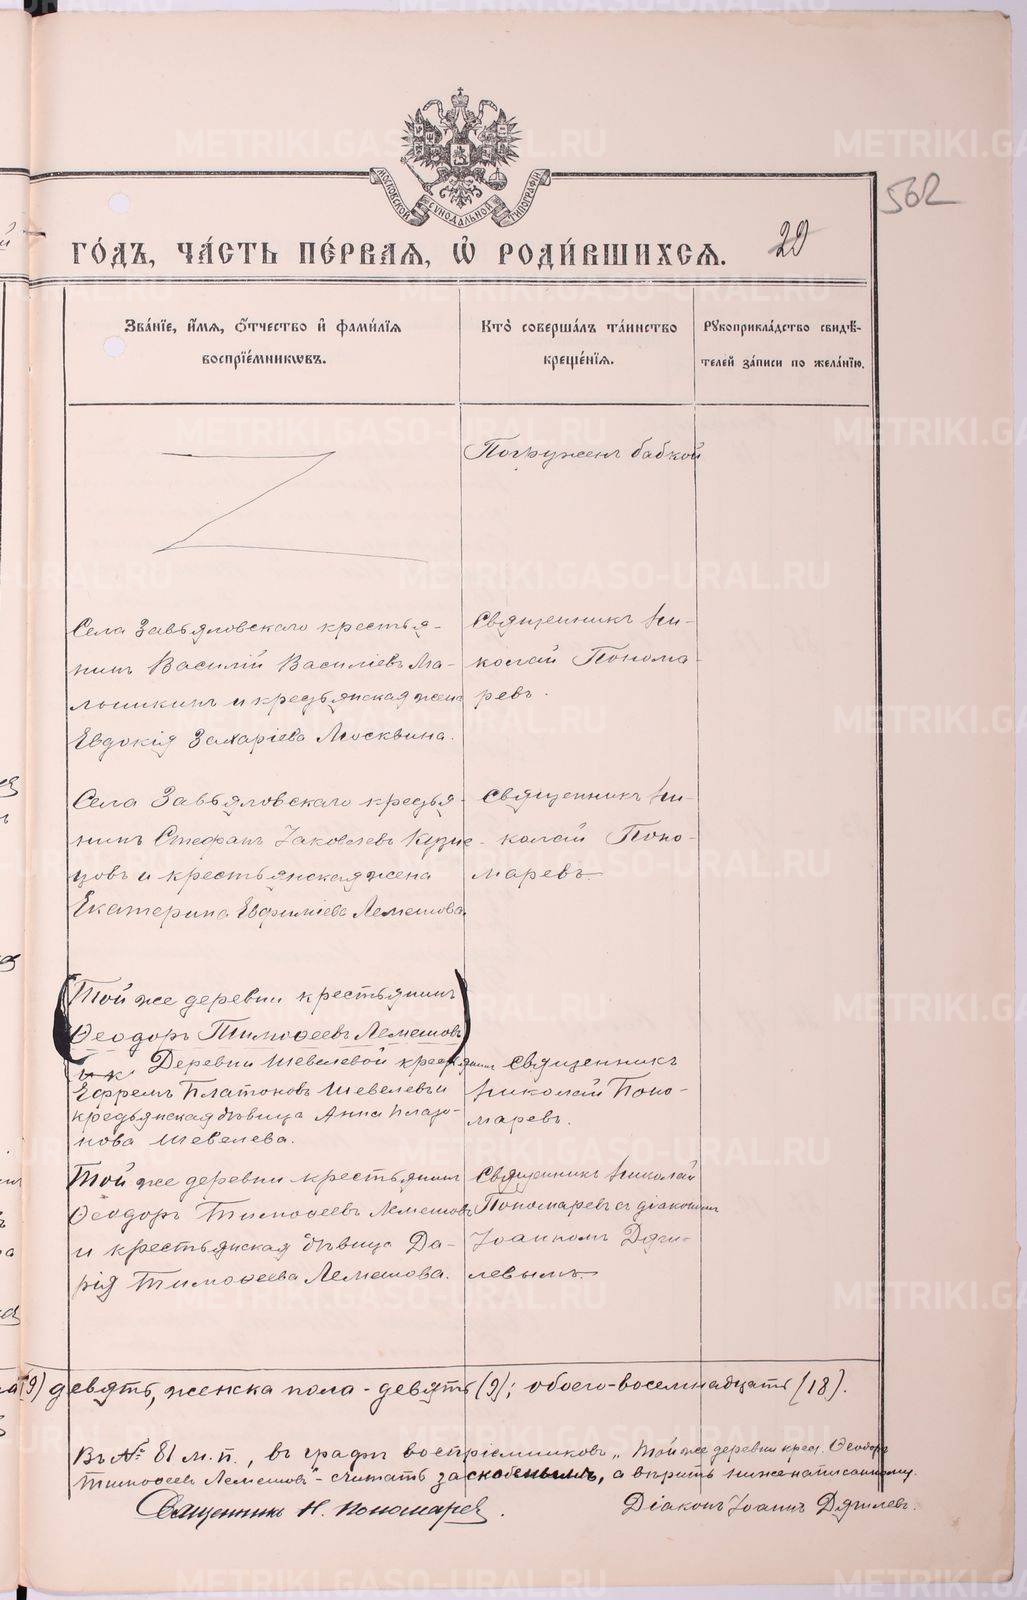 562
МОСКОВСКОЙ СѴНОДАЛЬНОЙ ТИПОГРАФІИ
ГО́ДЪ, ЧА́СТЬ ПЕ́РВАЯ, Ѡ҆ РОДИ́ВШИХСЯ.
29
Зва́нїе, и҆́мѧ, ѻ҆́тчество и҆ фами́лїѧ
воспрїе́мникѡвъ.
Кто̀ соверша́лъ та́инство
креще́нїѧ.
Рꙋкоприкла́дство свидѣ́-
телей за́писи по жела́нїю.
Погруженъ бабкой
Села Завьяловскаго крестья-
нинъ Василій Василіевъ Ма-
лышкинъ и крестьянская жена
Евдокія Захаріева Москвина.
Священникъ Ни-
колай Понома-
ревъ.
Села Завьяловскаго крестья-
нинъ Стефанъ Іаковлевъ Кузне-
цовъ и крестьянская жена
Екатерина Евфиміева Лемешова.
Священникъ Ни-
колай Поно-
маревъ
(Той же деревни крестьянинъ
Ѳеодоръ Тимоѳеевъ Лемешовъ)
Деревни Шевелевой крестьянинъ
Ефремъ Платоновъ Шевелевъ и
крестьянская дѣвица Анна Плато-
нова Шевелева.
Священникъ
Николай Поно-
маревъ.
Той же деревни крестьянинъ
Ѳеодоръ Тимоѳеевъ Лемешовъ
и крестьянская дѣвица Да-
рія Тимоѳеева Лемешова.
Священникъ Николай
Пономаревъ съ діакономъ
Іоанномъ Дяги-
левымъ
(9) девять, женска пола - девять (9); обоего - восемнадцать (18).
Въ № 81 м. п., въ графѣ воспріемниковъ „Той же деревни крест. Ѳеодоръ
Тимоѳеевъ Лемешовъ" - считать заскобленнымъ, а вѣрить ниженаписанному.
Священникъ Н. Пономаревъ.
Діаконъ Іоаннъ Дягилевъ.
METRIKI.GASO-URAL.RU